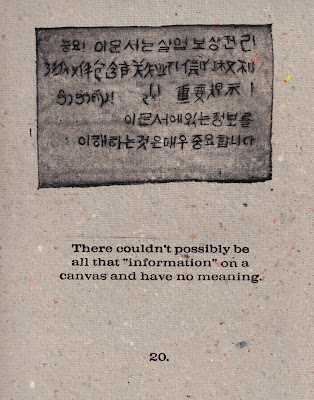 중요! 이문서는 실업 보상
包含有关失业
重要提示!
이문서에있는정보를
이해하는것은매우 중요합니다
There couldn't possibly be
all that "information" on a
canvas and have no meaning.
20.